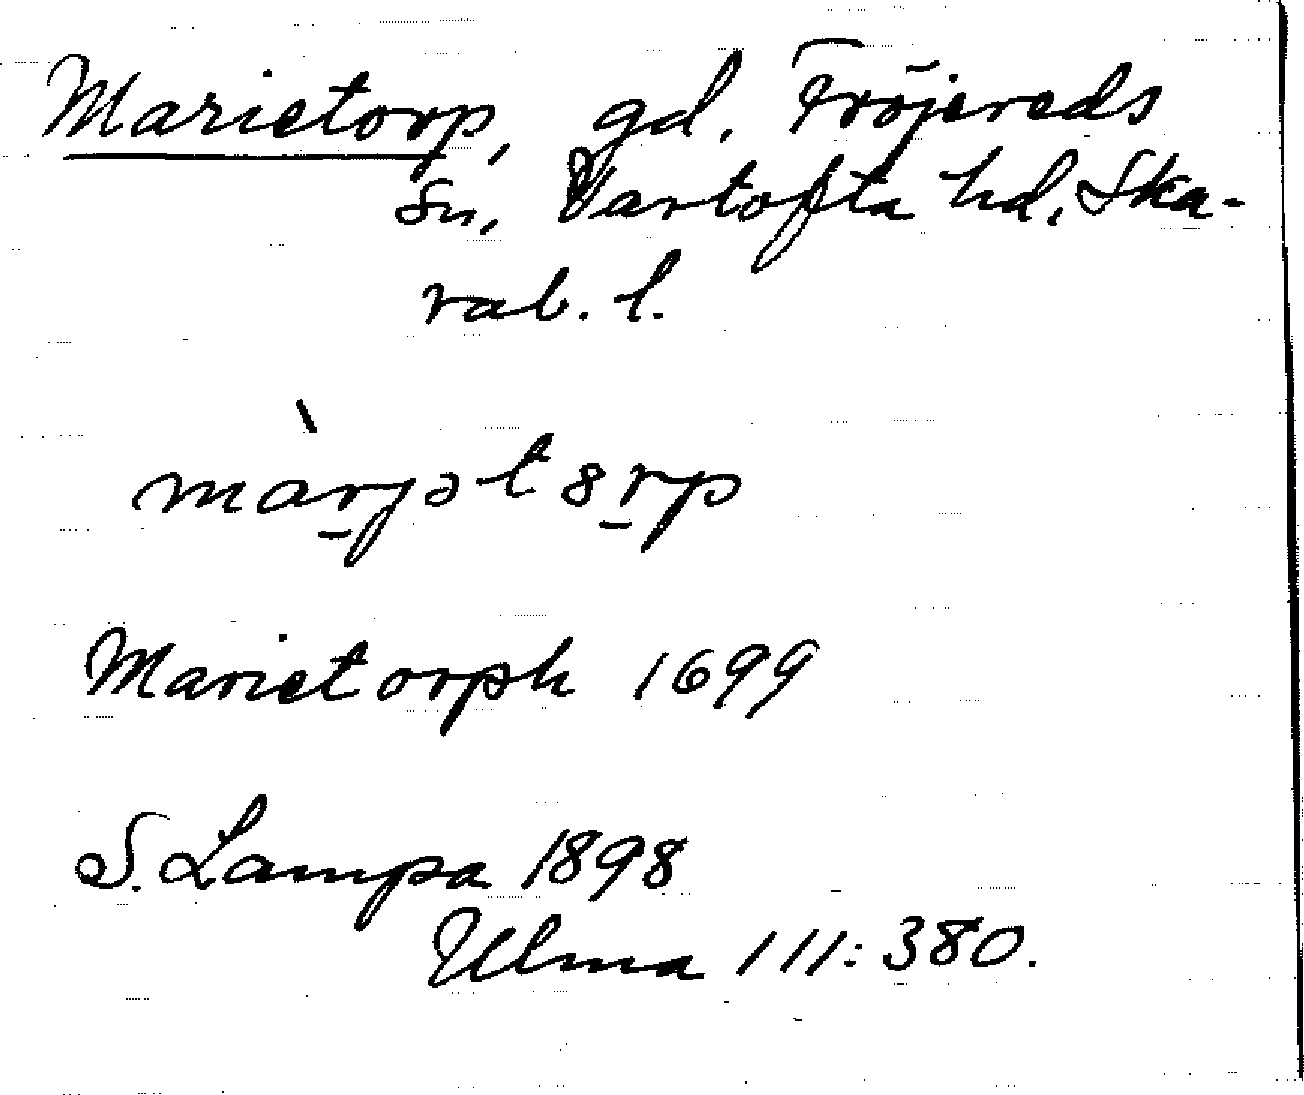 Marietorp, gd. Fröjereds
sn, Vartofta hd, Ska-
rab. l.
màrjət8rp
Marietorph 1699
S. Lampa 1898
Ulma 111:380.